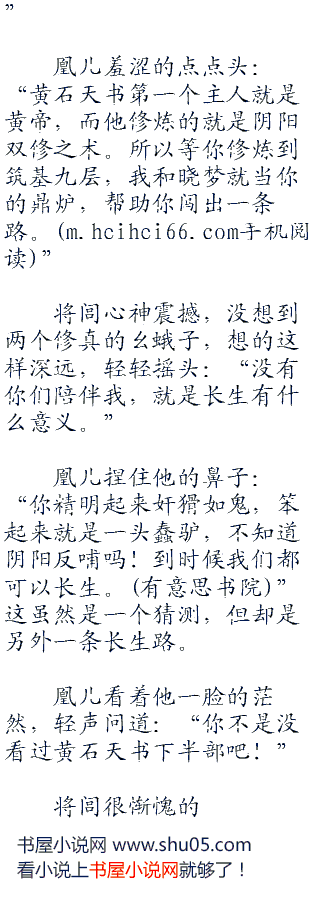 ”
凰儿羞涩的点点头：
“黄石天书第一个主人就是
黄帝，而他修炼的就是阴阳
双修之术。所以等你修炼到
筑基九层，我和晓梦就当你
的鼎炉，帮助你闯出一条
路。(m.hcihci66.com手机阅
读)”
将闾心神震撼，没想到
两个修真的幺蛾子，想的这
样深远，轻轻摇头：“没有
你们陪伴我，就是长生有什
么意义。”
凰儿捏住他的鼻子：
“你精明起来奸猾如鬼，笨
起来就是一头蠢驴，不知道
阴阳反哺吗！到时候我们都
可以长生。(有意思书院)”
这虽然是一个猜测，但却是
另外一条长生路。
凰儿看着他一脸的茫
然，轻声问道：“你不是没
看过黄石天书下半部吧！”
将闾很惭愧的
书屋小说网 www.shu05.com
看小说上书屋小说网就够了！